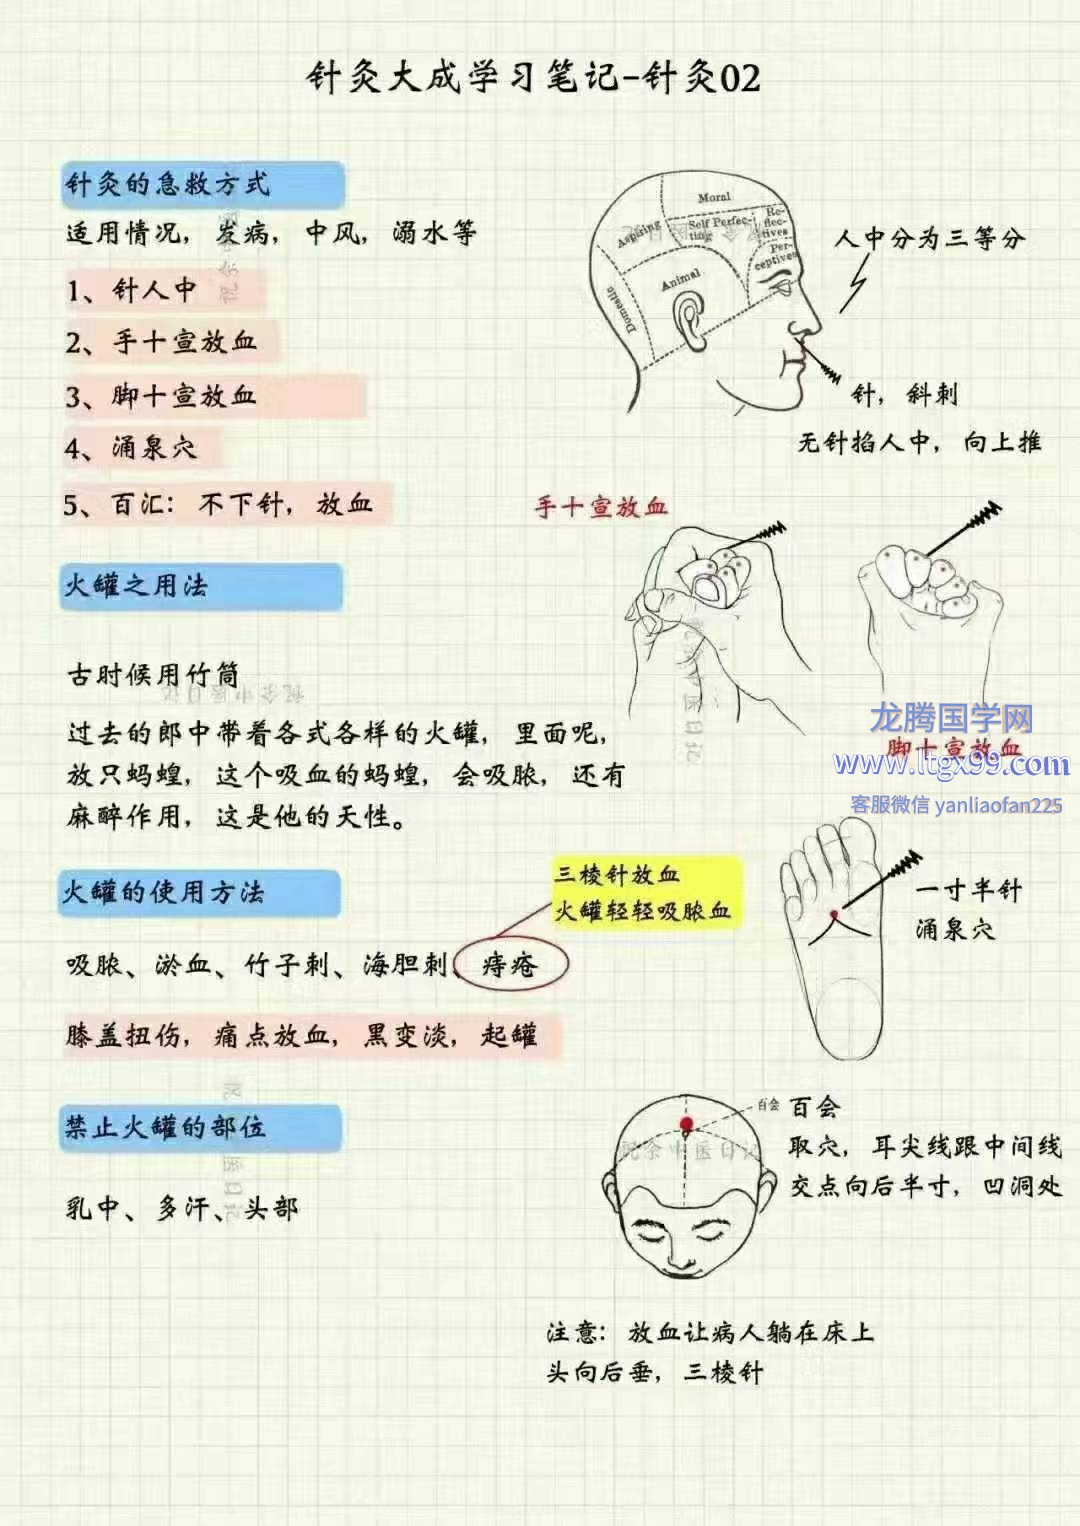 针灸大成学习笔记-针灸02
针灸的急救方式
适用情况，发病，中风，溺水等
1、针人中
2、手十宣放血
3、脚十宣放血
4、涌泉穴
5、百汇：不下针，放血
Moral
Aspiring
Self Perfec-
ting
Re-
flec-
tives
Per-
ceptives
Animal
Domestic
人中分为三等分
针，斜刺
无针掐人中，向上推
手十宣放血
火罐之用法
古时候用竹筒
过去的郎中带着各式各样的火罐，里面呢，
放只蚂蝗，这个吸血的蚂蝗，会吸脓，还有
麻醉作用，这是他的天性。
龙腾国学网
脚十宣放血
www.ltgx99.com
客服微信 yanliaofan225
火罐的使用方法
三棱针放血
火罐轻轻吸脓血
吸脓、淤血、竹子刺、海胆刺、痔疮
膝盖扭伤，痛点放血，黑变淡，起罐
一寸半针
涌泉穴
禁止火罐的部位
乳中、多汗、头部
百会
百会
取穴，耳尖线跟中间线
交点向后半寸，凹洞处
注意：放血让病人躺在床上
头向后垂，三棱针